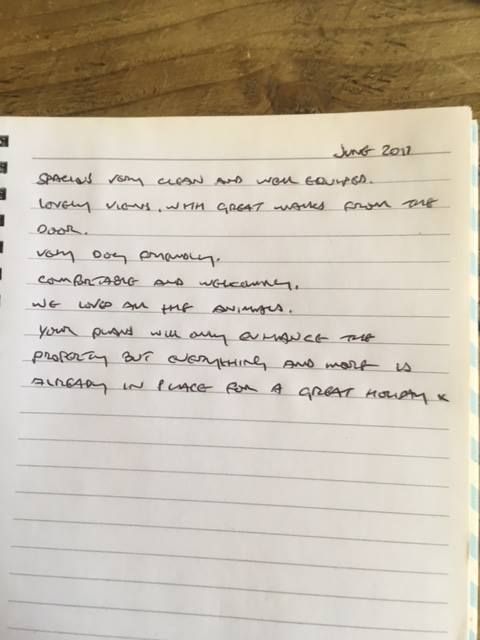 JUNE 2017
SPACIOUS VERY CLEAN AND WELL EQUIPED.
LOVELY VIEWS. WITH GREAT WALKS FROM THE
DOOR.
VERY DOG FRIENDLY.
COMFORTABLE AND WELCOMING.
WE LOVED ALL THE ANIMALS.
YOUR PLANS WILL ONLY ENHANCE THE
PROPERTY BUT EVERYTHING AND MORE IS
ALREADY IN PLACE FOR A GREAT HOLIDAY x